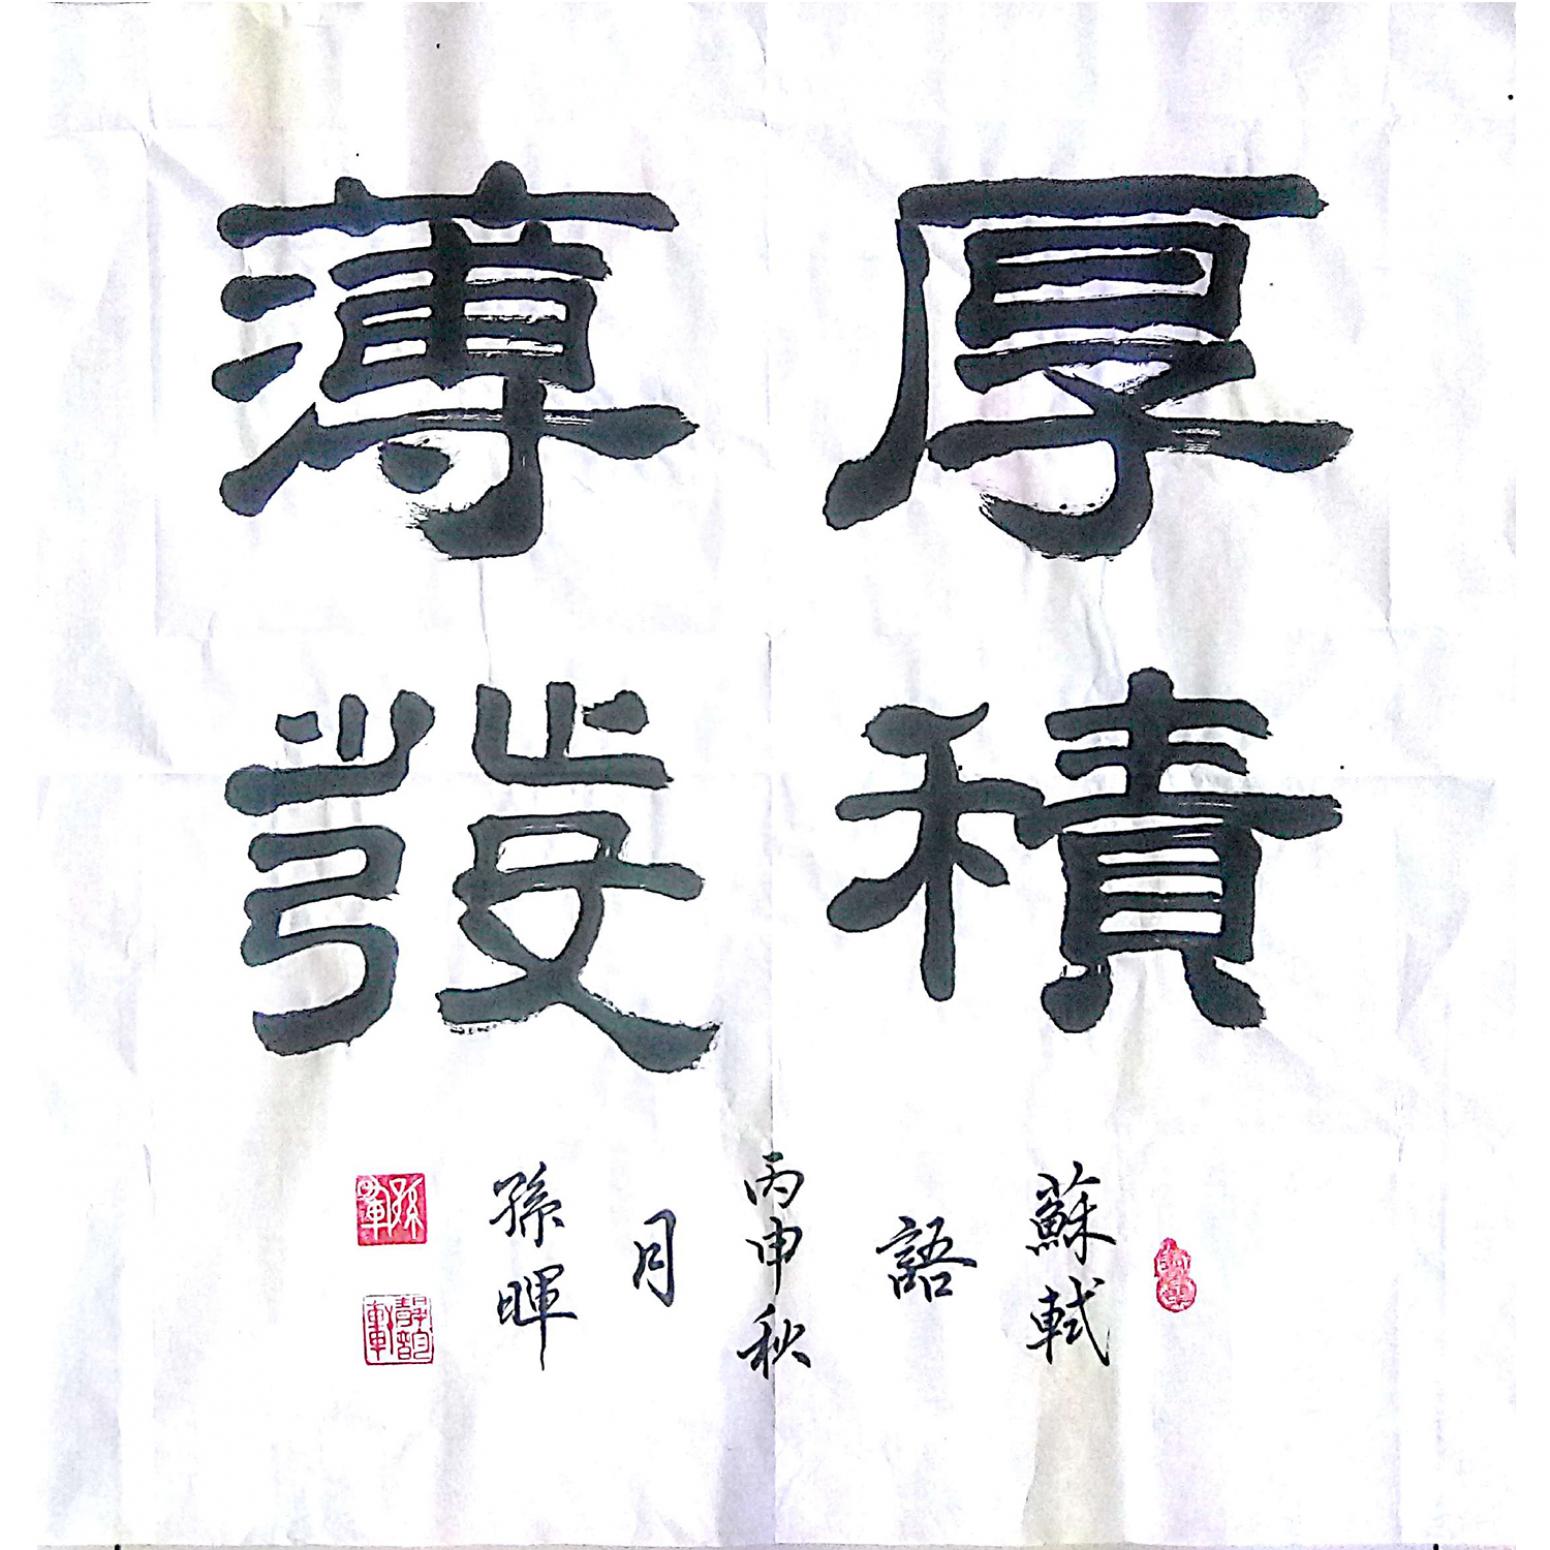 厚積
薄發
蘇軾
語
丙申秋
月
孫暉
孫暉